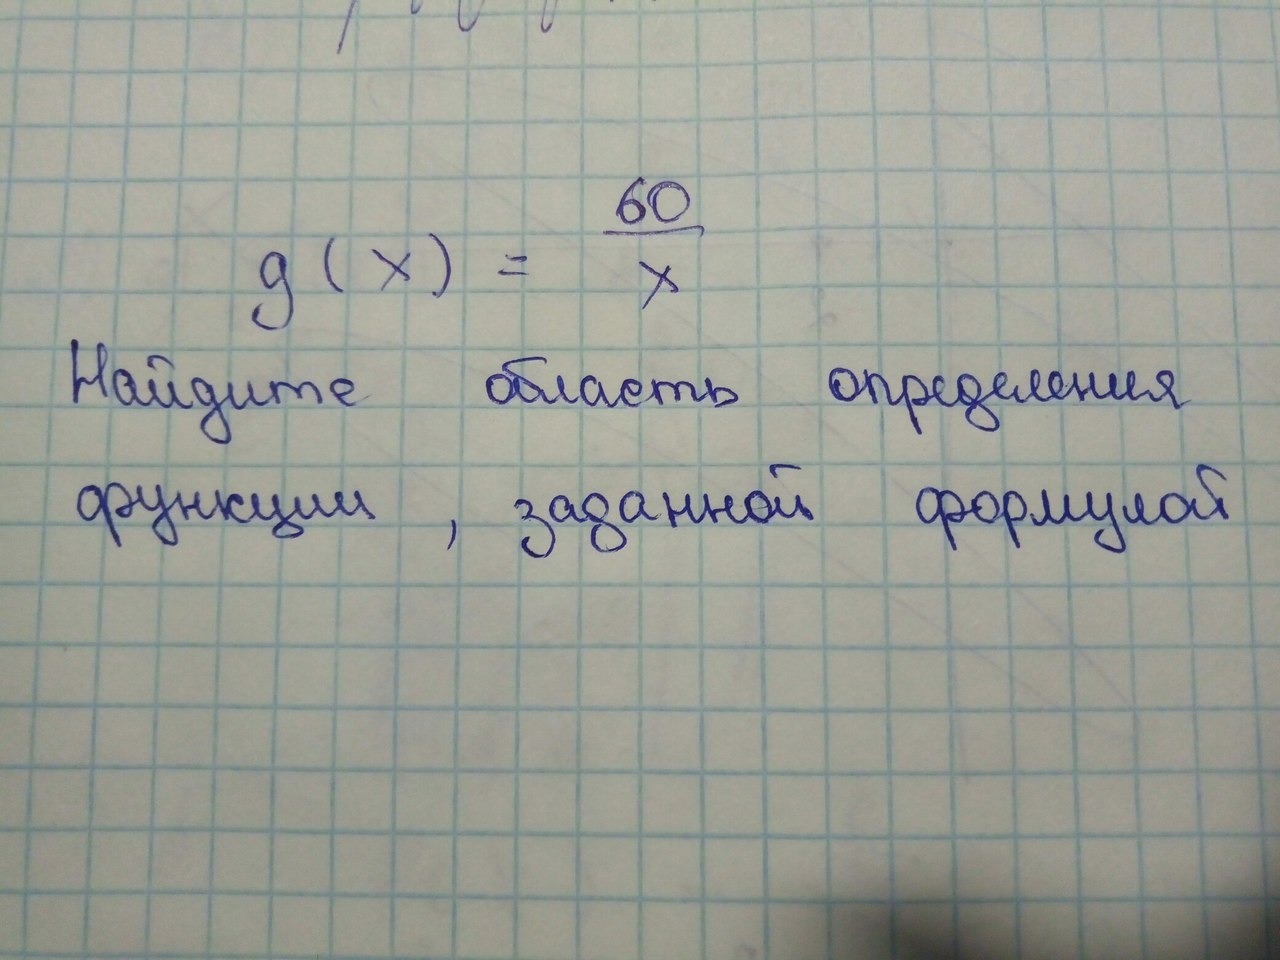 g(x) = 60/x
Найдите область определения
функции, заданной формулой